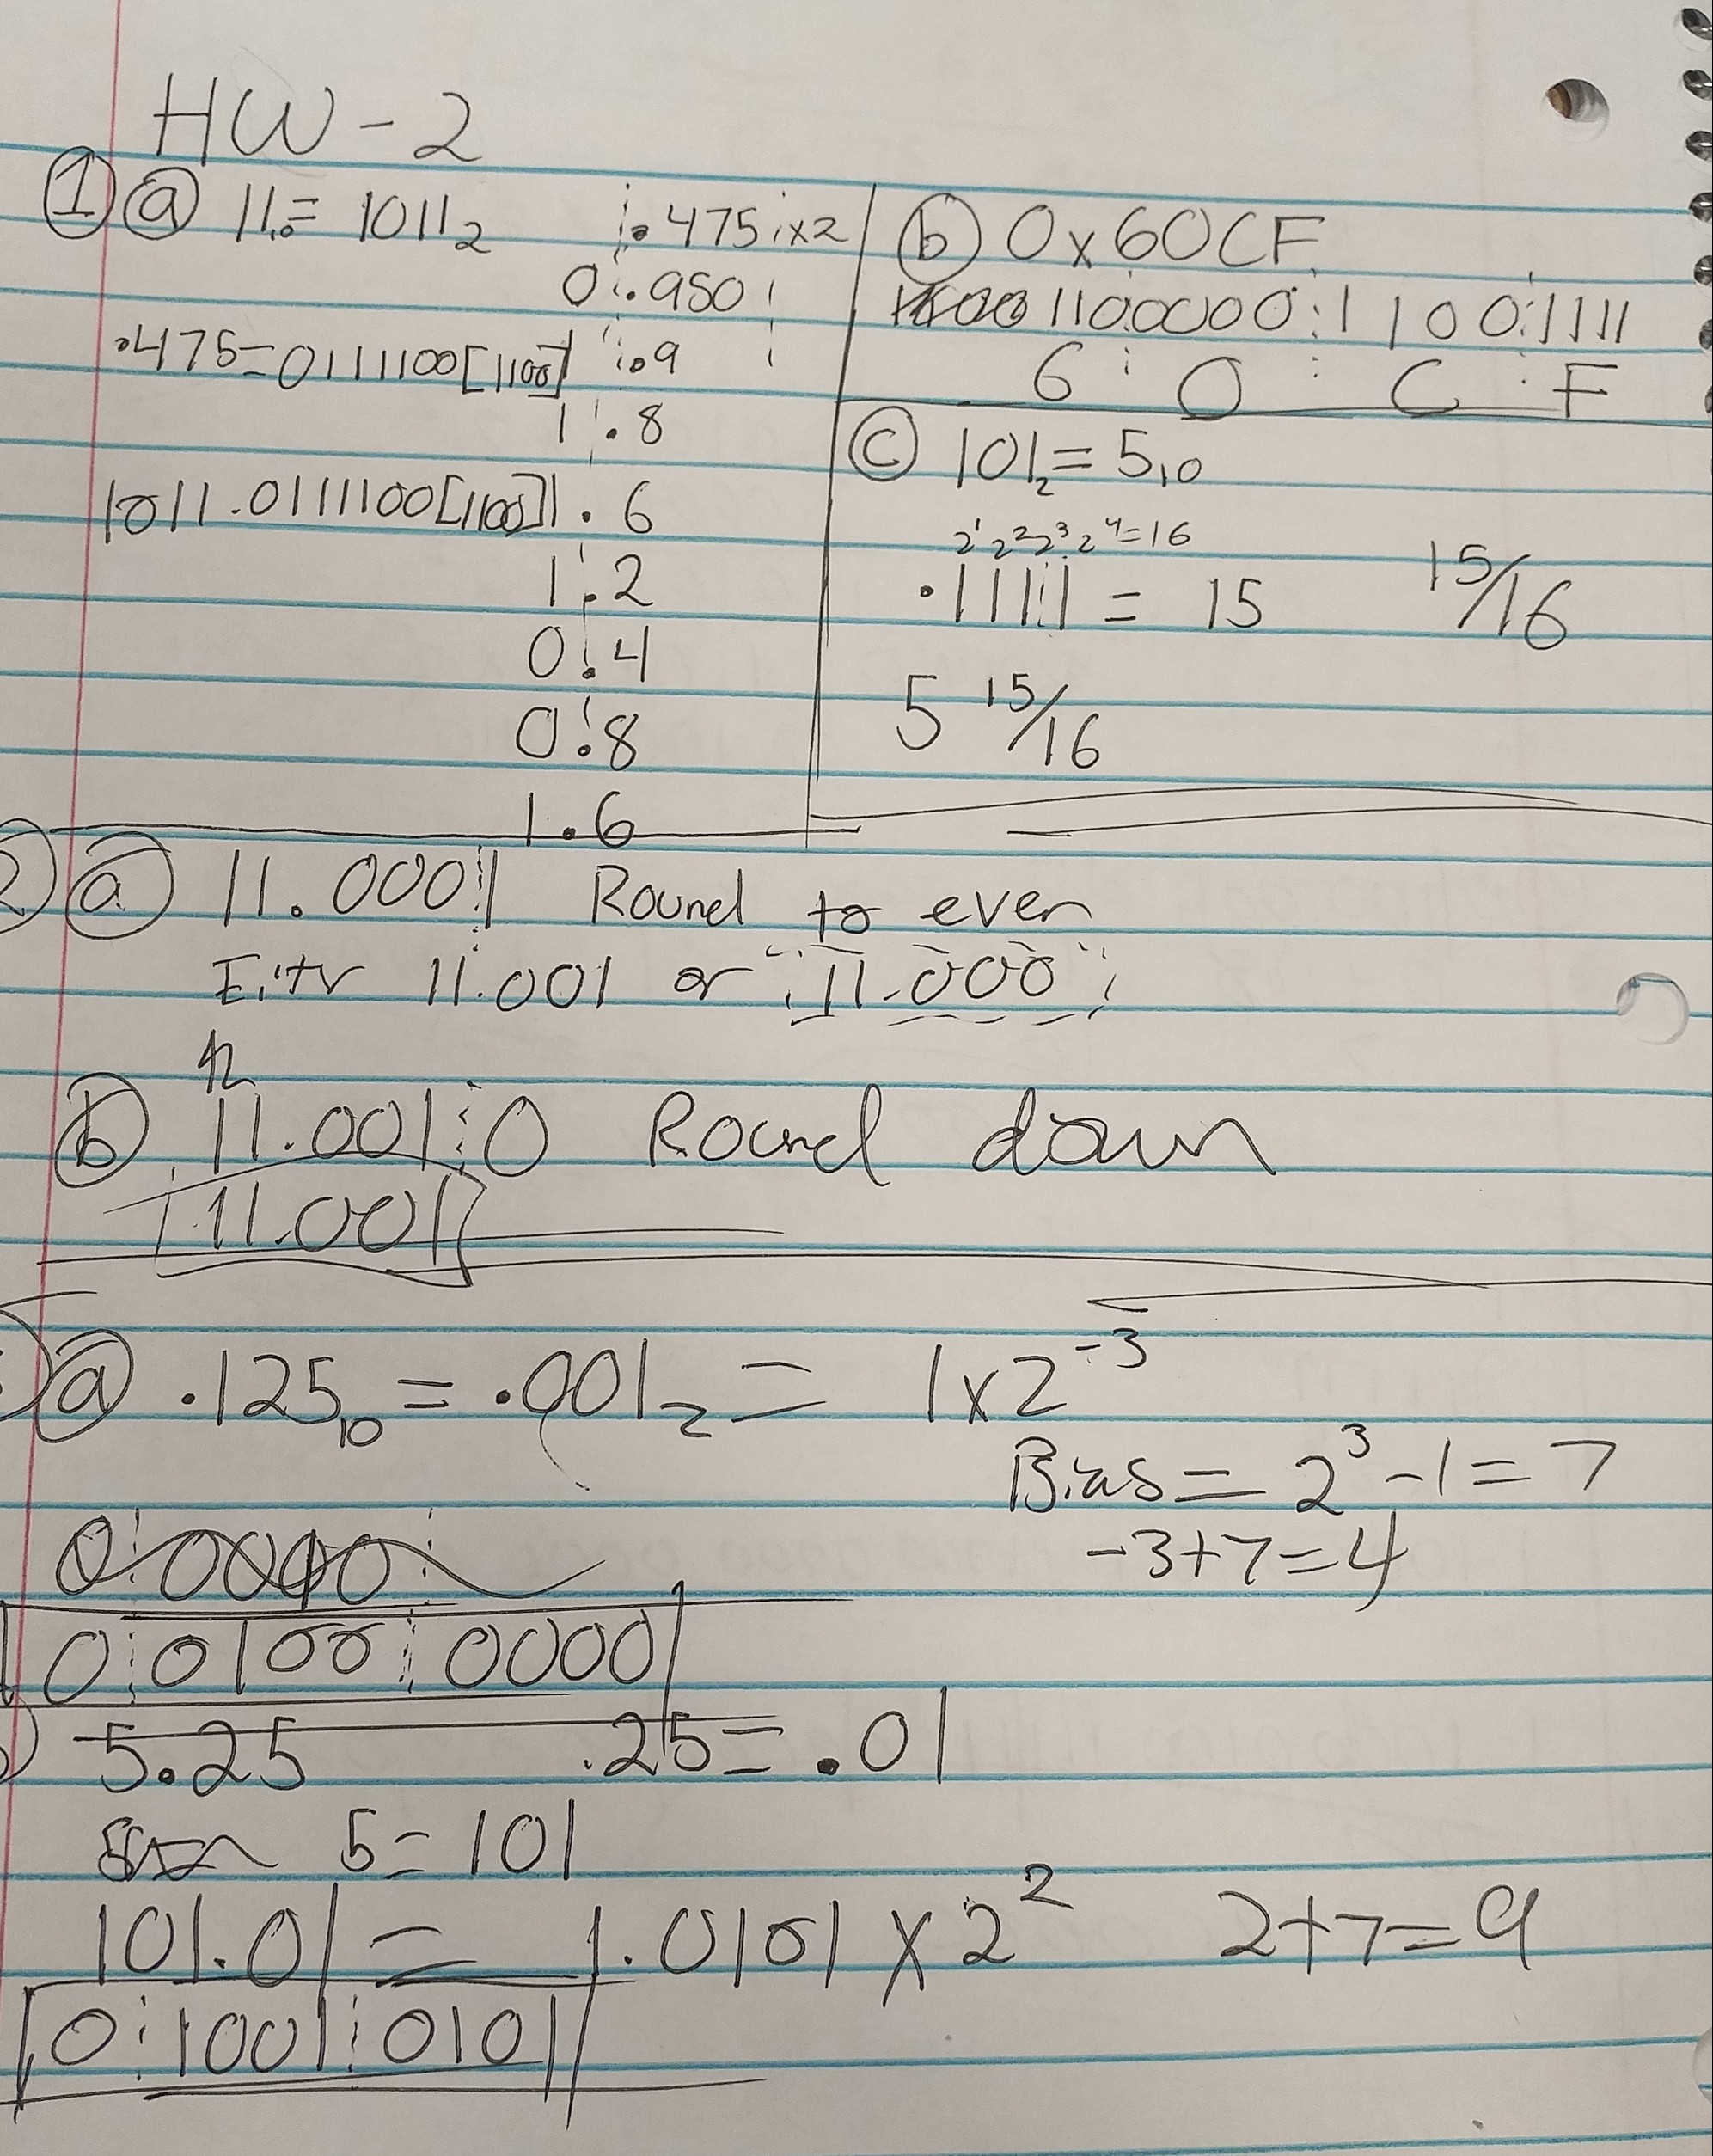 HW-2
① ⓐ 11. = 1011₂
.475 = 01111100[1100]
1011.0111100[1100]
.475 x2
0.950
1.9
1.8
1.6
1.2
0.4
0.8
1.6
ⓑ 0x60CF
110 0000 1100 1111
6 0 C F
ⓒ 101₂ = 5₁₀
2¹ 2² 2³ 2⁴ = 16
.1111 = 15 15/16
5 15/16
2 ⓐ 11.000 1 Round to even
11.001 or 11.000
ⓑ 11.001 0 Round down
11.001
ⓐ .125₁₀ = .001₂ = 1x2⁻³
Bias = 2³-1 = 7
-3+7=4
0 0100 0000
5.25 .25 = .01
5 = 101
101.01 = 1.0101 x 2² 2+7=9
0 1001 0101